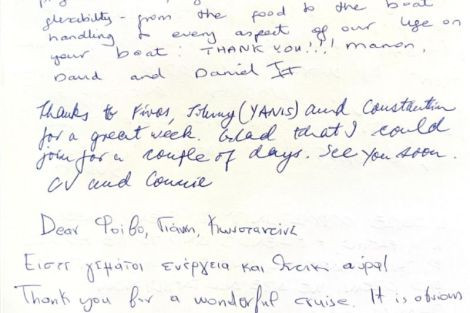 flexibility - from the food to the boat
handling to every aspect of our life on
your boat: THANK YOU!!! Manon,
David and Daniel
Thanks to Fivos, Johnny (YANIS) and Constantin
for a great week. Glad that I could
join for a couple of days. See you soon.
CV and Connie
Dear Φοίβο, Γιάννη, Κωνσταντίνε
Είστε γεμάτοι ενέργεια και θετική αύρα!
Thank you for a wonderful cruise. It is obvious